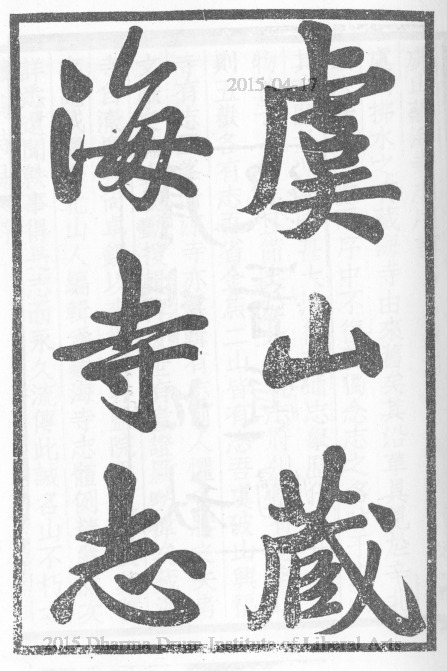 虞山藏
海寺志
2015-04-17
2015 Dharma Drum Institute of Liberal Arts